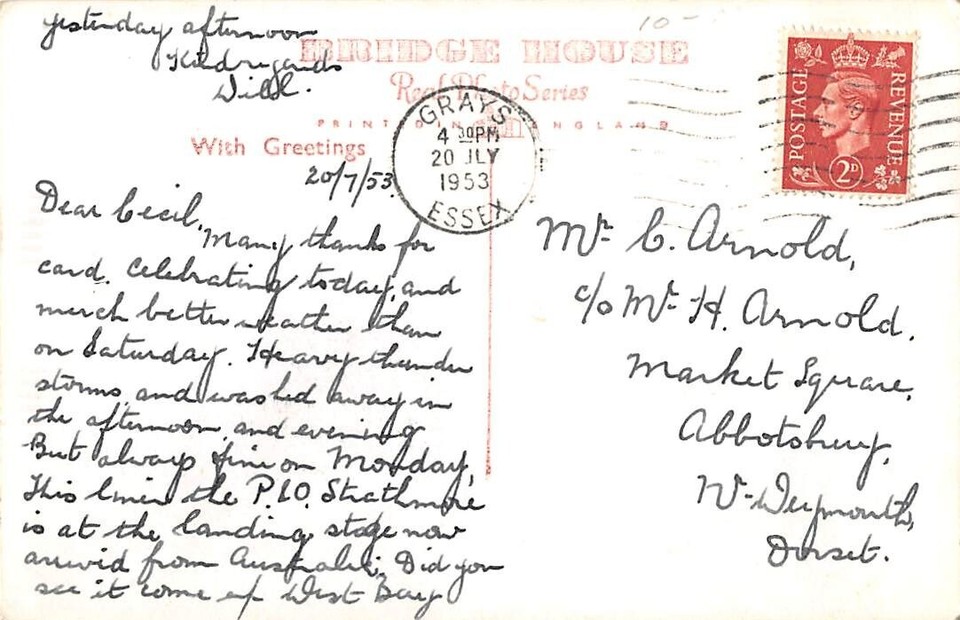 yesterday afternoon
Kind regards
Will.
10-
BRIDGE HOUSE
Real Photo Series
PRINTED IN ENGLAND
With Greetings
GRAYS
4 30PM
20 JLY
1953
ESSEX
POSTAGE
REVENUE
2D
20/7/53
Dear Cecil,
Many thanks for
card. Celebrating today, and
much better weather than
on Saturday. Heavy thunder
storms, and washed away in
the afternoon, and evening
But always fine on Monday,
This liner the P.&O. Strathmore
is at the landing stage now
arrived from Australia. Did you
see it come up West Bay
Mr C. Arnold,
c/o Mr H. Arnold.
Market Square,
Abbotsbury,
Nr Weymouth,
Dorset.